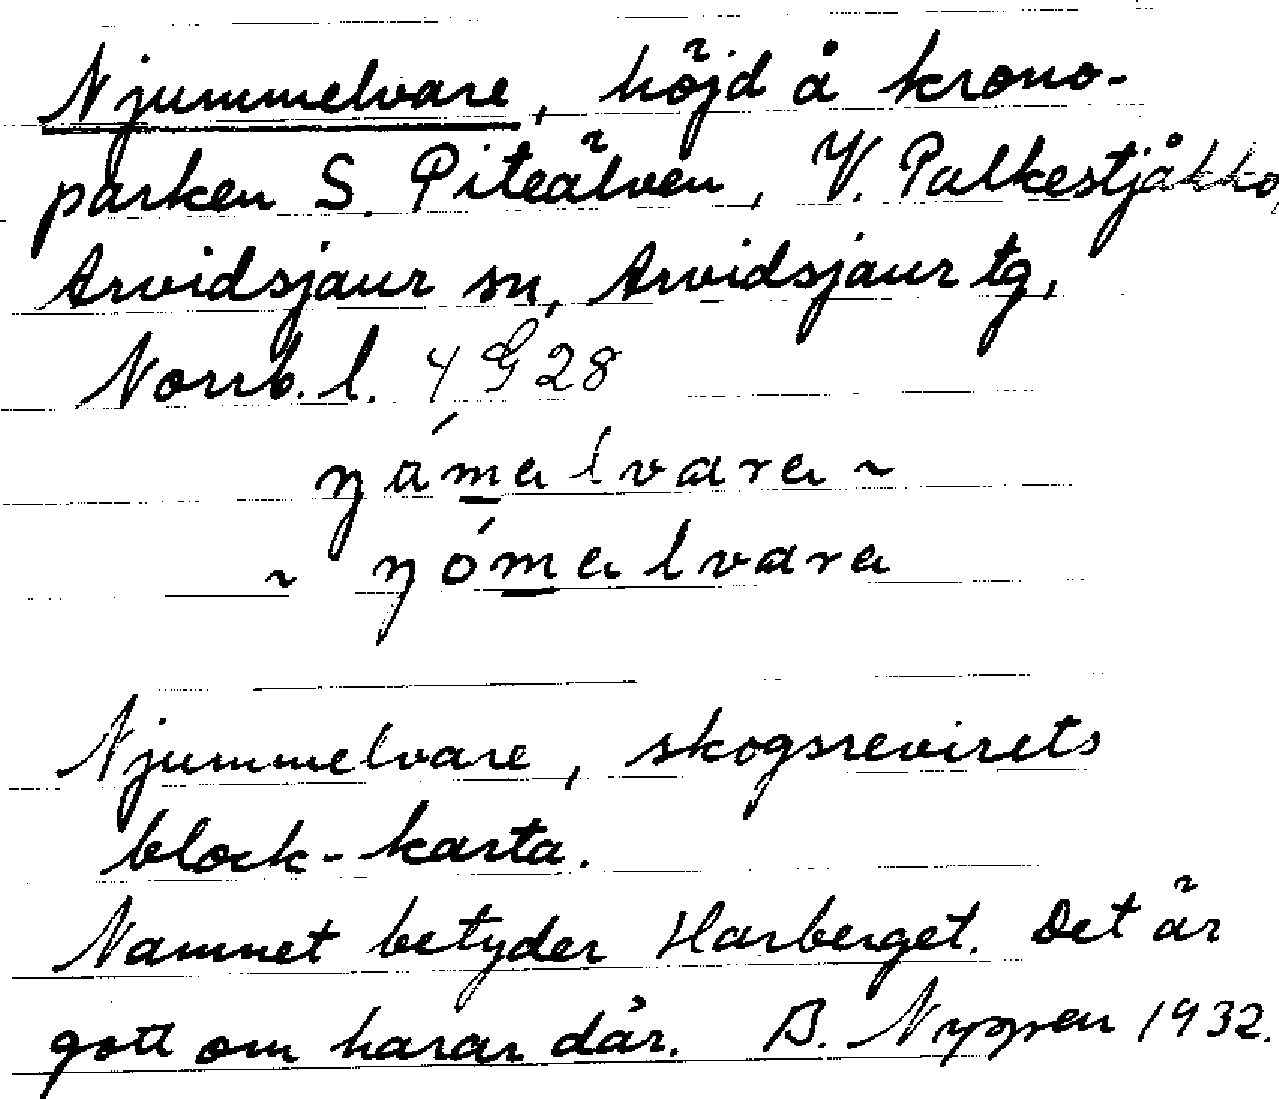 Njummelvare, höjd å krono-
parken S. Piteälven, V. Palkestjåkko,
Arvidsjaur sn, Arvidsjaur tg,
Norrb. l. 4 G 28
ŋámalvara ~
~ ŋómalvara
Njummelvare, skogsrevirets
block-karta.
Namnet betyder Harberget. Det är
gott om harar där. B. Nyppen 1932.